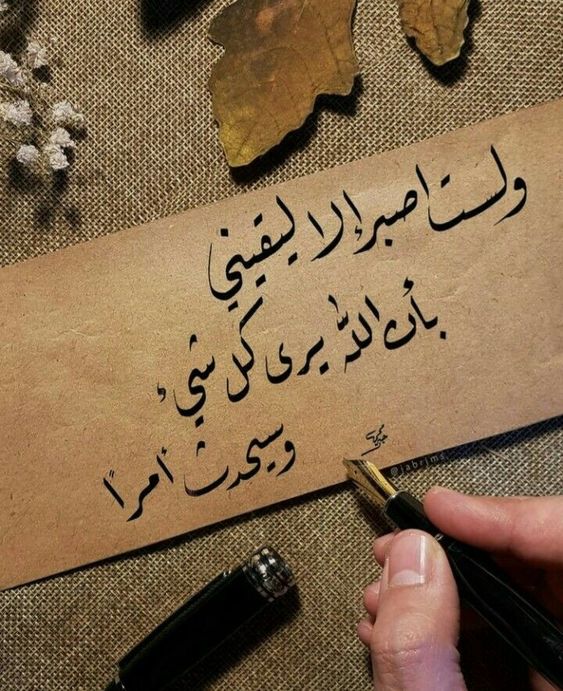 ولست اصبر إلا ليقيني
بأن اللّٰه يرى كل شيء
وسيحدث أمراً
@jabrjms